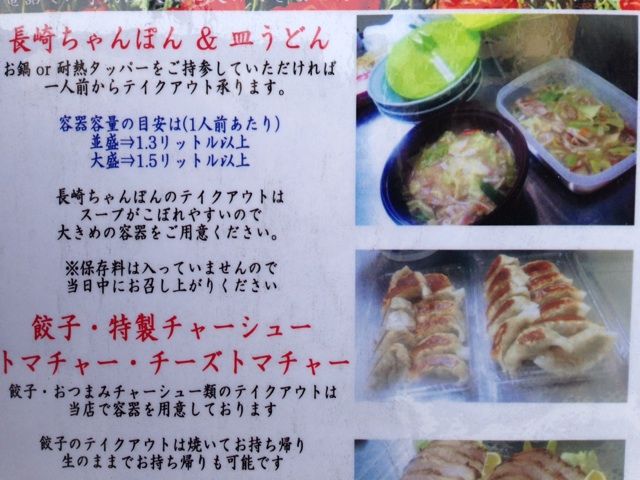 長崎ちゃんぽん & 皿うどん
お鍋 or 耐熱タッパーをご持参していただければ
一人前からテイクアウト承ります。
容器容量の目安は(1人前あたり)
並盛⇒1.3リットル以上
大盛⇒1.5リットル以上
長崎ちゃんぽんのテイクアウトは
スープがこぼれやすいので
大きめの容器をご用意ください。
※保存料は入っていませんので
当日中にお召し上がりください
餃子・特製チャーシュー
トマチャー・チーズトマチャー
餃子・おつまみチャーシュー類のテイクアウトは
当店で容器を用意しております
餃子のテイクアウトは焼いてお持ち帰り
生のままでお持ち帰りも可能です